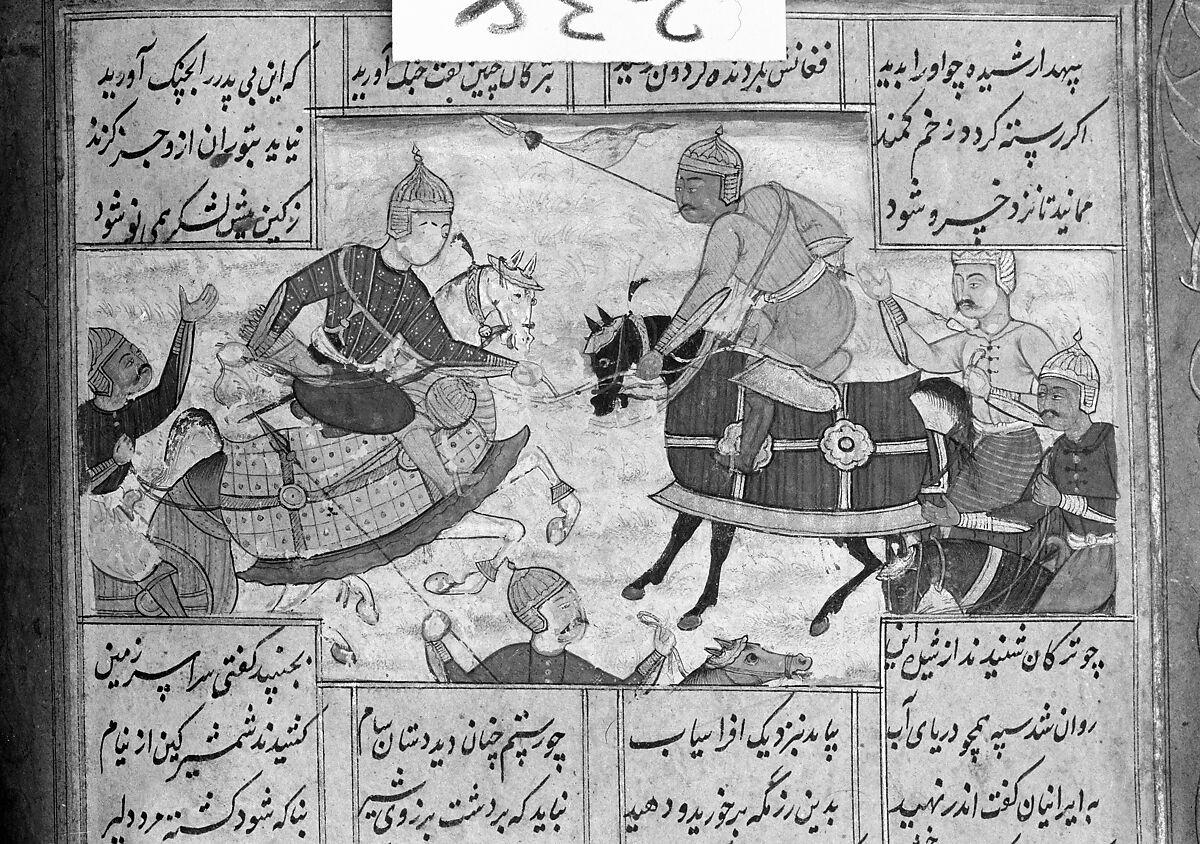 سپهدار شیده چو او را بدید
فغانش بگردنده گردون رسید
بترکان چین گفت جنگ آورید
که این بی پدر را بچنگ آورید
اگر رسته گردد ز خم کمند
نیاید بتوران ازو جز گزند
ممانید تا نزد خسرو شود
زکین پیش لشکر همی نو شود
چو ترکان شنیدند از شیده این
بجنبید گفتی سراسر زمین
روان شد سپه همچو دریای آب
بیامد بنزدیک افراسیاب
چو رستم چنان دید دستان سام
کشیدند شمشیر کین از نیام
به ایرانیان گفت اندر نهید
بدین رزمگه بر خورید و دهید
نباید که بر دشت برزوی شیر
بناگه شود کشته مرد دلیر